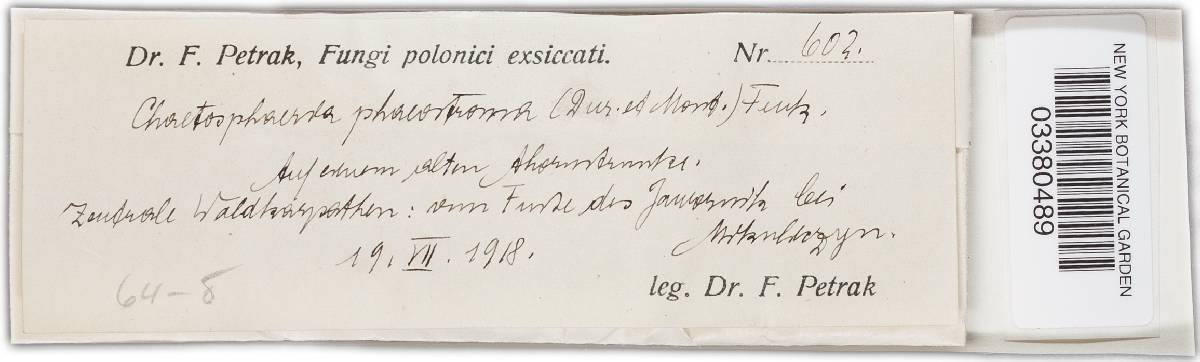 Dr. F. Petrak, Fungi polonici exsiccati. Nr. 602.
Chaetosphaeria phaeostroma (Dur. et Mont.) Fuck.
Auf einem alten Ahornstrunke.
Zentrale Waldkarpathen: am Fusse des Jawornik bei
Mikuliczyn.
19. VII. 1918.
64-8
leg. Dr. F. Petrak
NEW YORK BOTANICAL GARDEN
03380489